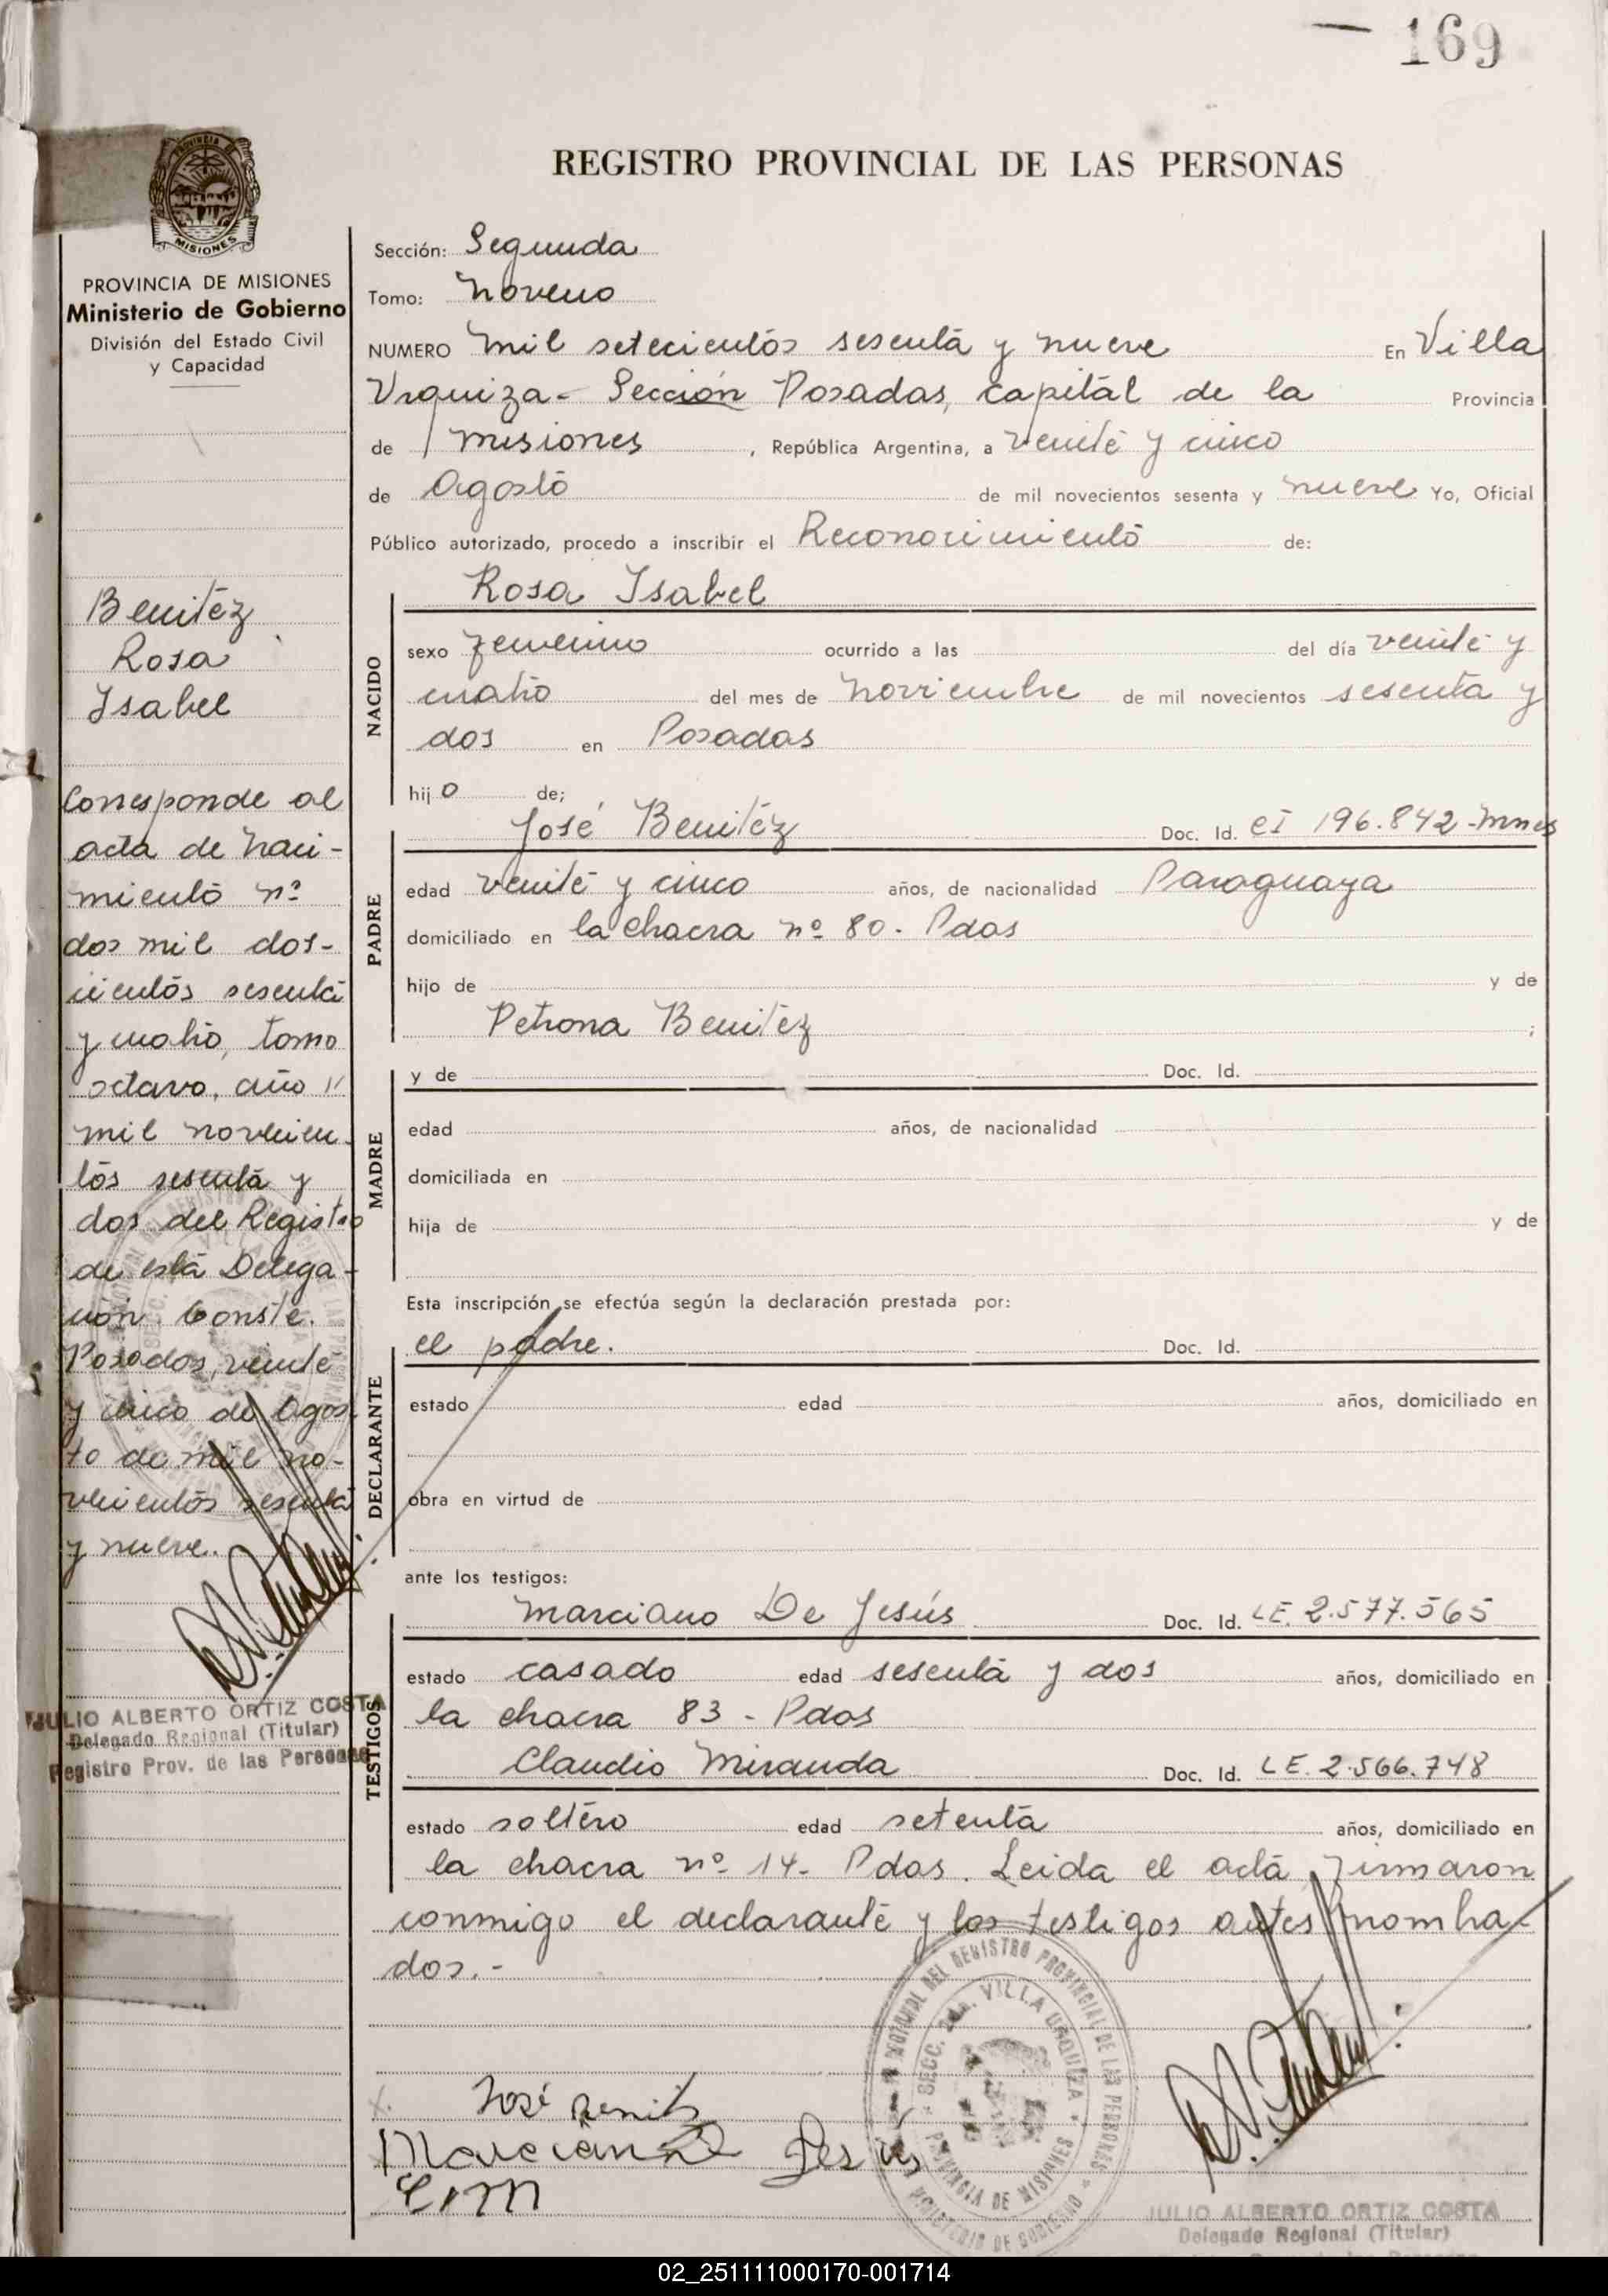 169
REGISTRO PROVINCIAL DE LAS PERSONAS
PROVINCIA DE MISIONES
Ministerio de Gobierno
División del Estado Civil
y Capacidad
Benitéz
Rosa
Isabel
Corresponde al
acta de naci-
miento nº
dos mil dos-
cientos sesenta
y cuatro, tomo
octavo, año "
mil novecien-
tos sesenta y
dos del Registro
de esta Delega-
ción. Conste.
Posadas, veinte
y cinco de Agos-
to de mil no-
vecientos sesenta
y nueve.
JULIO ALBERTO ORTIZ COSTA
Delegado Regional (Titular)
Registro Prov. de las Personas
Sección: Segunda
Tomo: Noveno
NUMERO mil setecientos sesenta y nueve En Villa
Urquiza - Sección Posadas, capital de la Provincia
de Misiones, República Argentina, a veinte y cinco
de Agosto de mil novecientos sesenta y nueve Yo, Oficial
Público autorizado, procedo a inscribir el Reconocimiento de:
NACIDO
Rosa Isabel
sexo femenino ocurrido a las del día veinte y
cuatro del mes de noviembre de mil novecientos sesenta y
dos en Posadas
hija de;
PADRE
José Benitéz Doc. Id. CI 196.842-Mnes
edad veinte y cinco años, de nacionalidad Paraguaya
domiciliado en la chacra nº 80. Pdas
hijo de y de
Petrona Benitéz ;
MADRE
y de Doc. Id.
edad años, de nacionalidad
domiciliada en
hija de y de
Esta inscripción se efectúa según la declaración prestada por:
DECLARANTE
el padre. Doc. Id.
estado edad años, domiciliado en
obra en virtud de
ante los testigos:
TESTIGOS
Marciano De Jesús Doc. Id. LE. 2.577.565
estado casado edad sesenta y dos años, domiciliado en
la chacra 83 - Pdas
Claudio Miranda Doc. Id. LE. 2.566.748
estado soltero edad setenta años, domiciliado en
la chacra nº 14- Pdas. Leida el acta, firmaron
conmigo el declarante y los testigos antes nombra-
dos.-
José Benit
Marciano De Jesús
C M
DEL REGISTRO PROVINCIAL DE LAS PERSONAS
SECC. 2da. VILLA URQUIZA
PROVINCIA DE MISIONES
MINISTERIO DE GOBIERNO
JULIO ALBERTO ORTIZ COSTA
Delegado Regional (Titular)
02_251111000170-001714